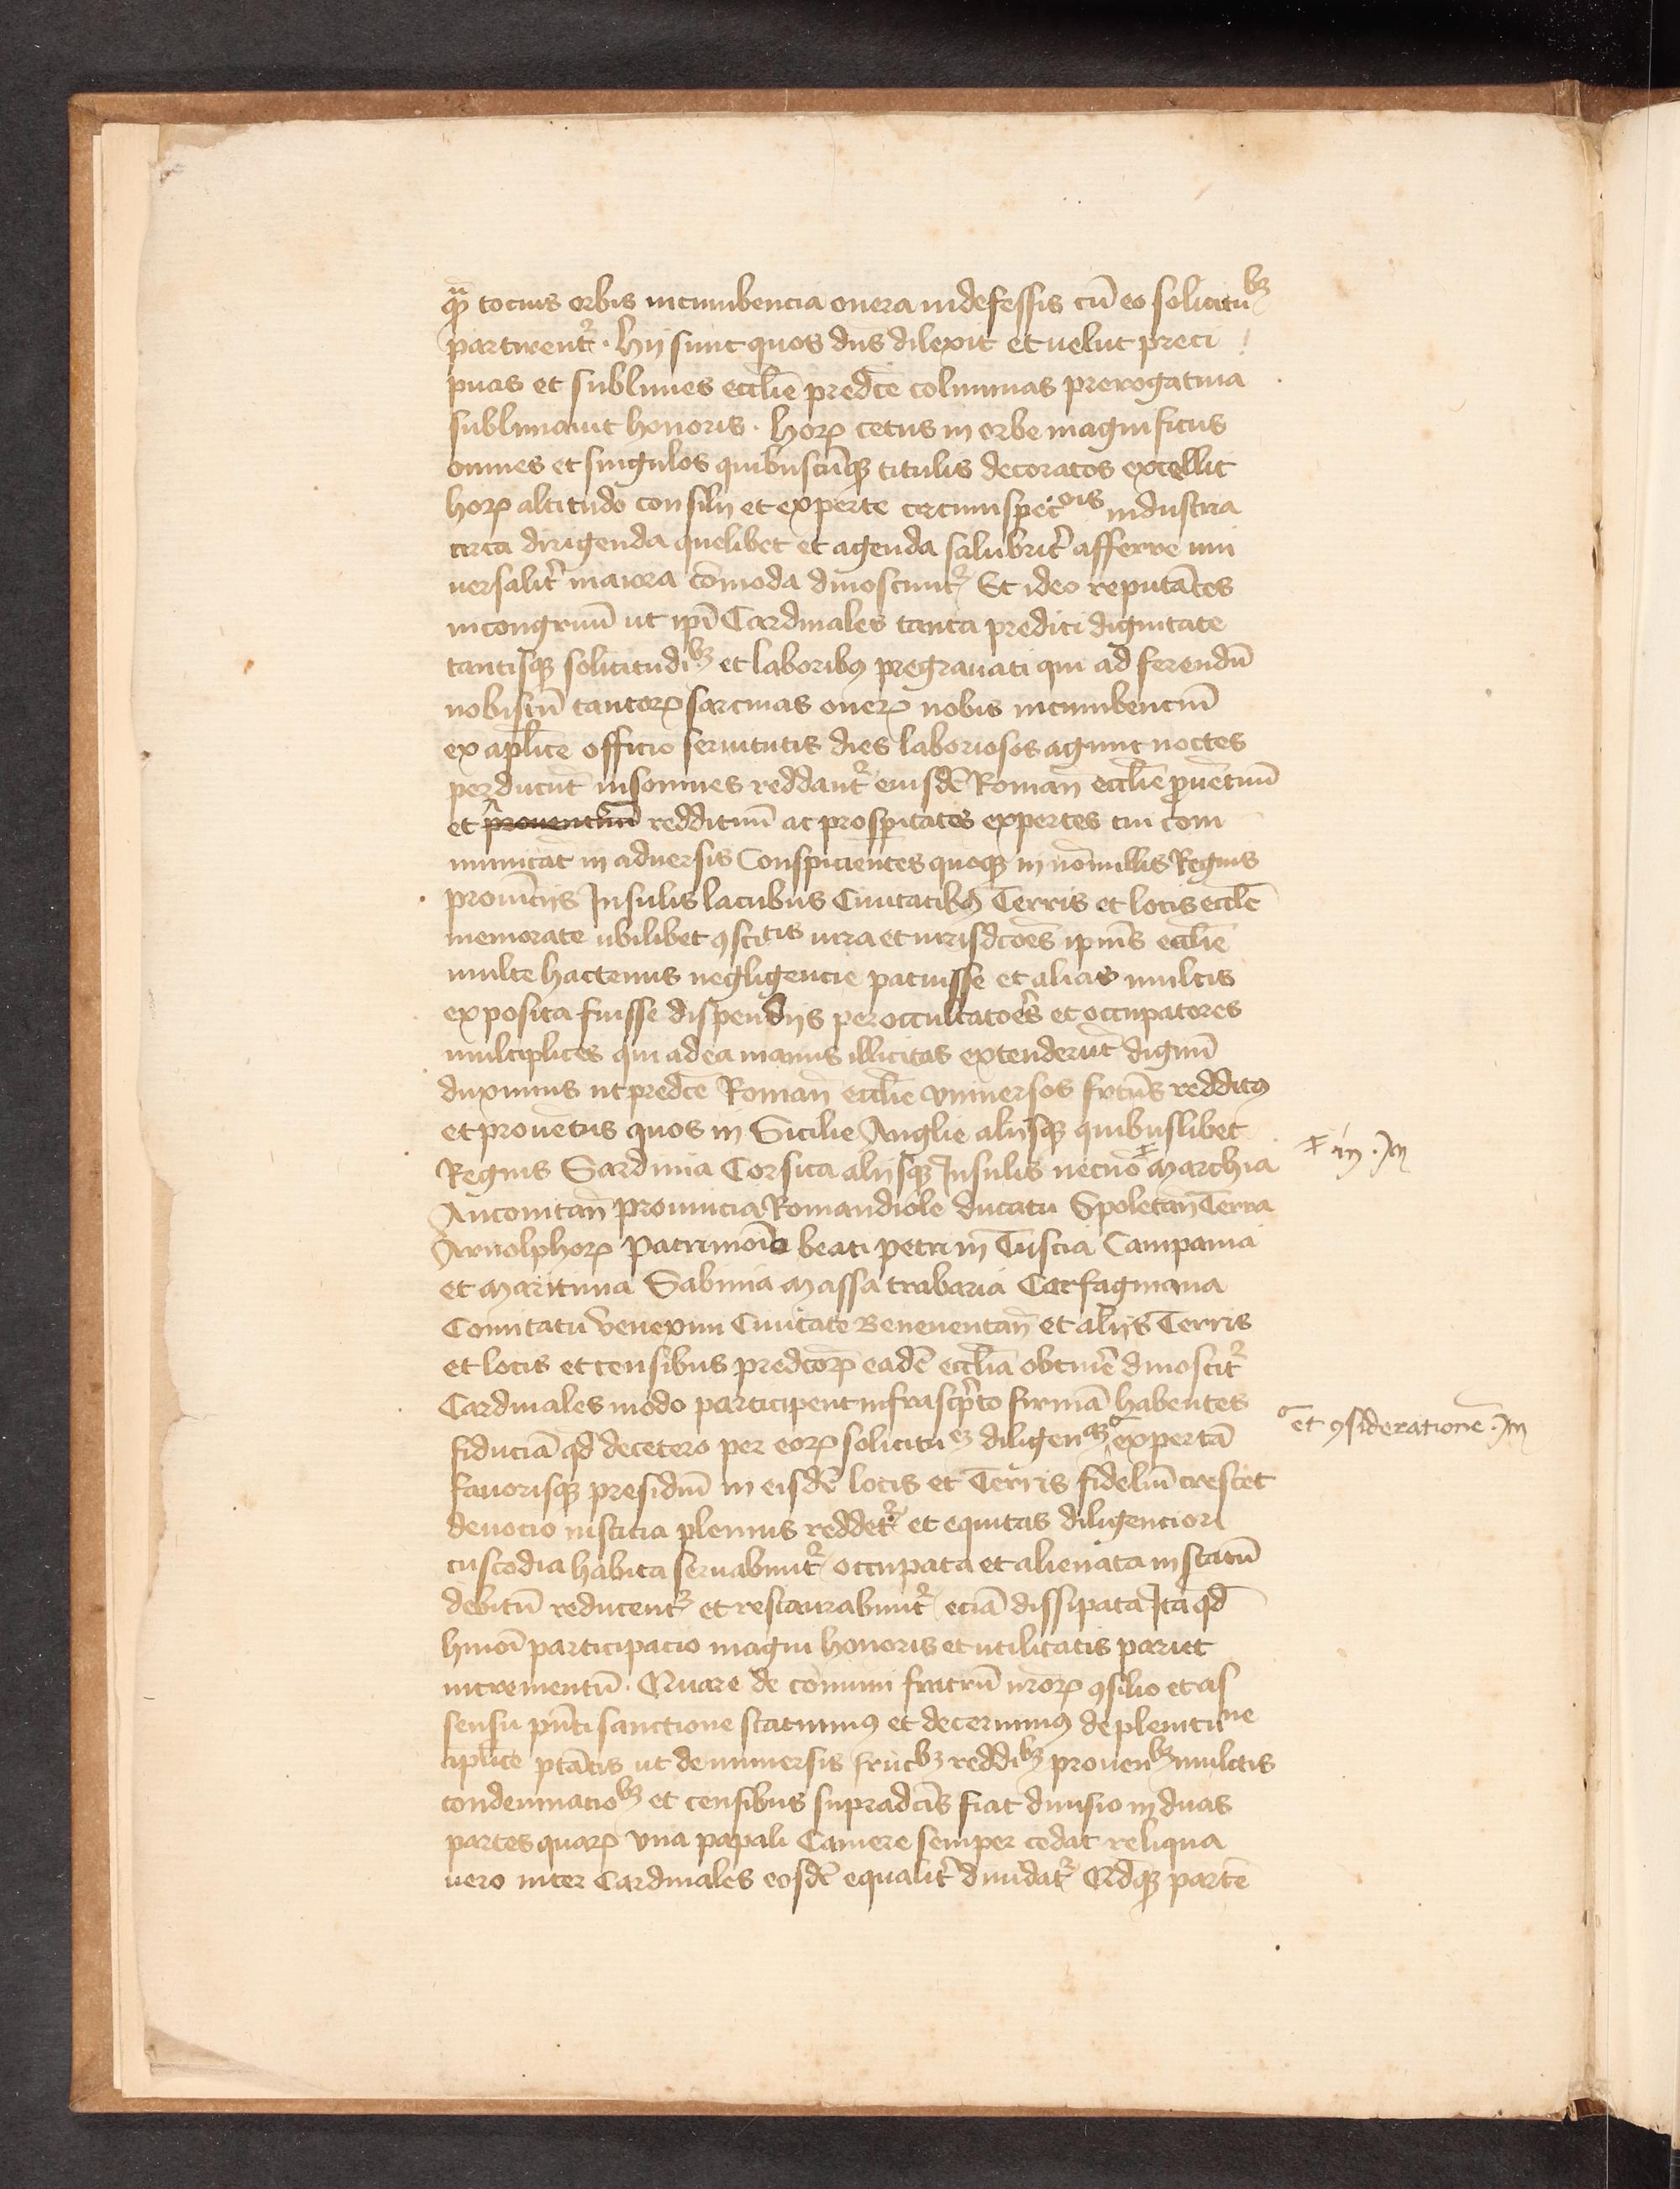 qͣ tocius orbis incumbencia onera indefessis cū eo solicituᵇᶻ
partirent᷑ . hij sunt quos dn̄s dilexit et uelut preci
puas et sublimes eccl̄ie predc̄e columnas prerogatiua
sublimauit honoris . horꝝ cetus in orbe magnificus
omnes et singulos quibuscūqꝫ titulis decoratos excellit
horꝝ altitudo consilij et experte circumspectͦⁱˢ industria
circa dirigenda quelibet et agenda salubrit̄ afferre uni
uersalit̄ maiora cōmoda dinoscunt᷑ Et ideo reputātes
incongruū ut ip̄i Cardinales tanta prediti dignitate
tantisqꝫ solicitudiᵇᶻ et laboribꝰ pregrauati qui ad ferendū
nobiscū tantorꝝ sarcinas onerꝝ nobis incumbenciū
ex aplīce officio seruitutis dies laboriosos agunt noctes
perducūt insomnes reddant᷑ eiusdē Roman̄ eccl̄ie prouētuū
et prouentuū reddituū ac prosperitates expertes cui com
municāt in aduersis Conspicientes quoqꝫ in nōnullis Regnis
prouīcijs Insulis lacubus Ciuitatibꝰ Terris et locis eccl̄e
memorate ubilibet ꝯsctᵗⁱˢ iura et iurisdcōēs ipiu᷒s eccl̄ie
multe hactenus negligencie patuisse et alias multis
exposita fuisse dispendijs per occultatoēs et occupatores
multiplices qui ad ea manus illicitas extenderūt dignū
duximus ut predc̄e Roman̄ eccl̄ie vniuersos frctūs redditꝰ
et prouētus quos in Sicilie Anglie alijsqꝫ quibuslibet
Regnis Sardinia Corsica alijsqꝫ Insulis necnō Marchia
Anconitan̄ prouincia Romandiole ducatu Spoletan̄ Terra
Arnolphorꝝ patrimoīo beati petri in Tuscia Campania
et Maritima Sabinia Massa trabaria Carfagnana
Comitatu venexini Ciuitate Beneuentan̄ et alijs Terris
et locis et censibus predcōrꝝ eadē eccl̄ia obtinē dinoscit᷑
Cardinales modo participent infrascp̄to firmā habentes
fiduciā qd̄ decetero per eorꝝ solicituᵉᶻ diligenᵃᶻ expertā
fauorisqꝫ presidiū in eisdē locis et Terris fideliū crescet
deuocio iusticia plenius reddet᷑ et equitas diligenciori
custodia habita seruabunt᷑ occupata et alienata in statū
debitū reducent᷑ et restaurabunt᷑ eciā dissipata Ita qd̄
hmōi participacio magni honoris et utilitatis pariet
incrementū . Quare de cōmuni fratrū nrōrꝝ ꝯsilio et as
sensu pn̄ti sanctione statuimꝰ et decernimꝰ de plenituⁿᵉ
aplīce ptātis ut de uniuersis frucᵇᶻ reddiᵇᶻ prouenᵇᶻ mulctis
condemnatioᵇᶻ et censibus supradcīs fiat diuisio in duas
partes quarꝝ vna papali Camere semper cedat reliqua
uero inter Cardinales eosdē equalit̄ diuidat᷑ Qd̄qꝫ partē
in
et ꝯsideratione